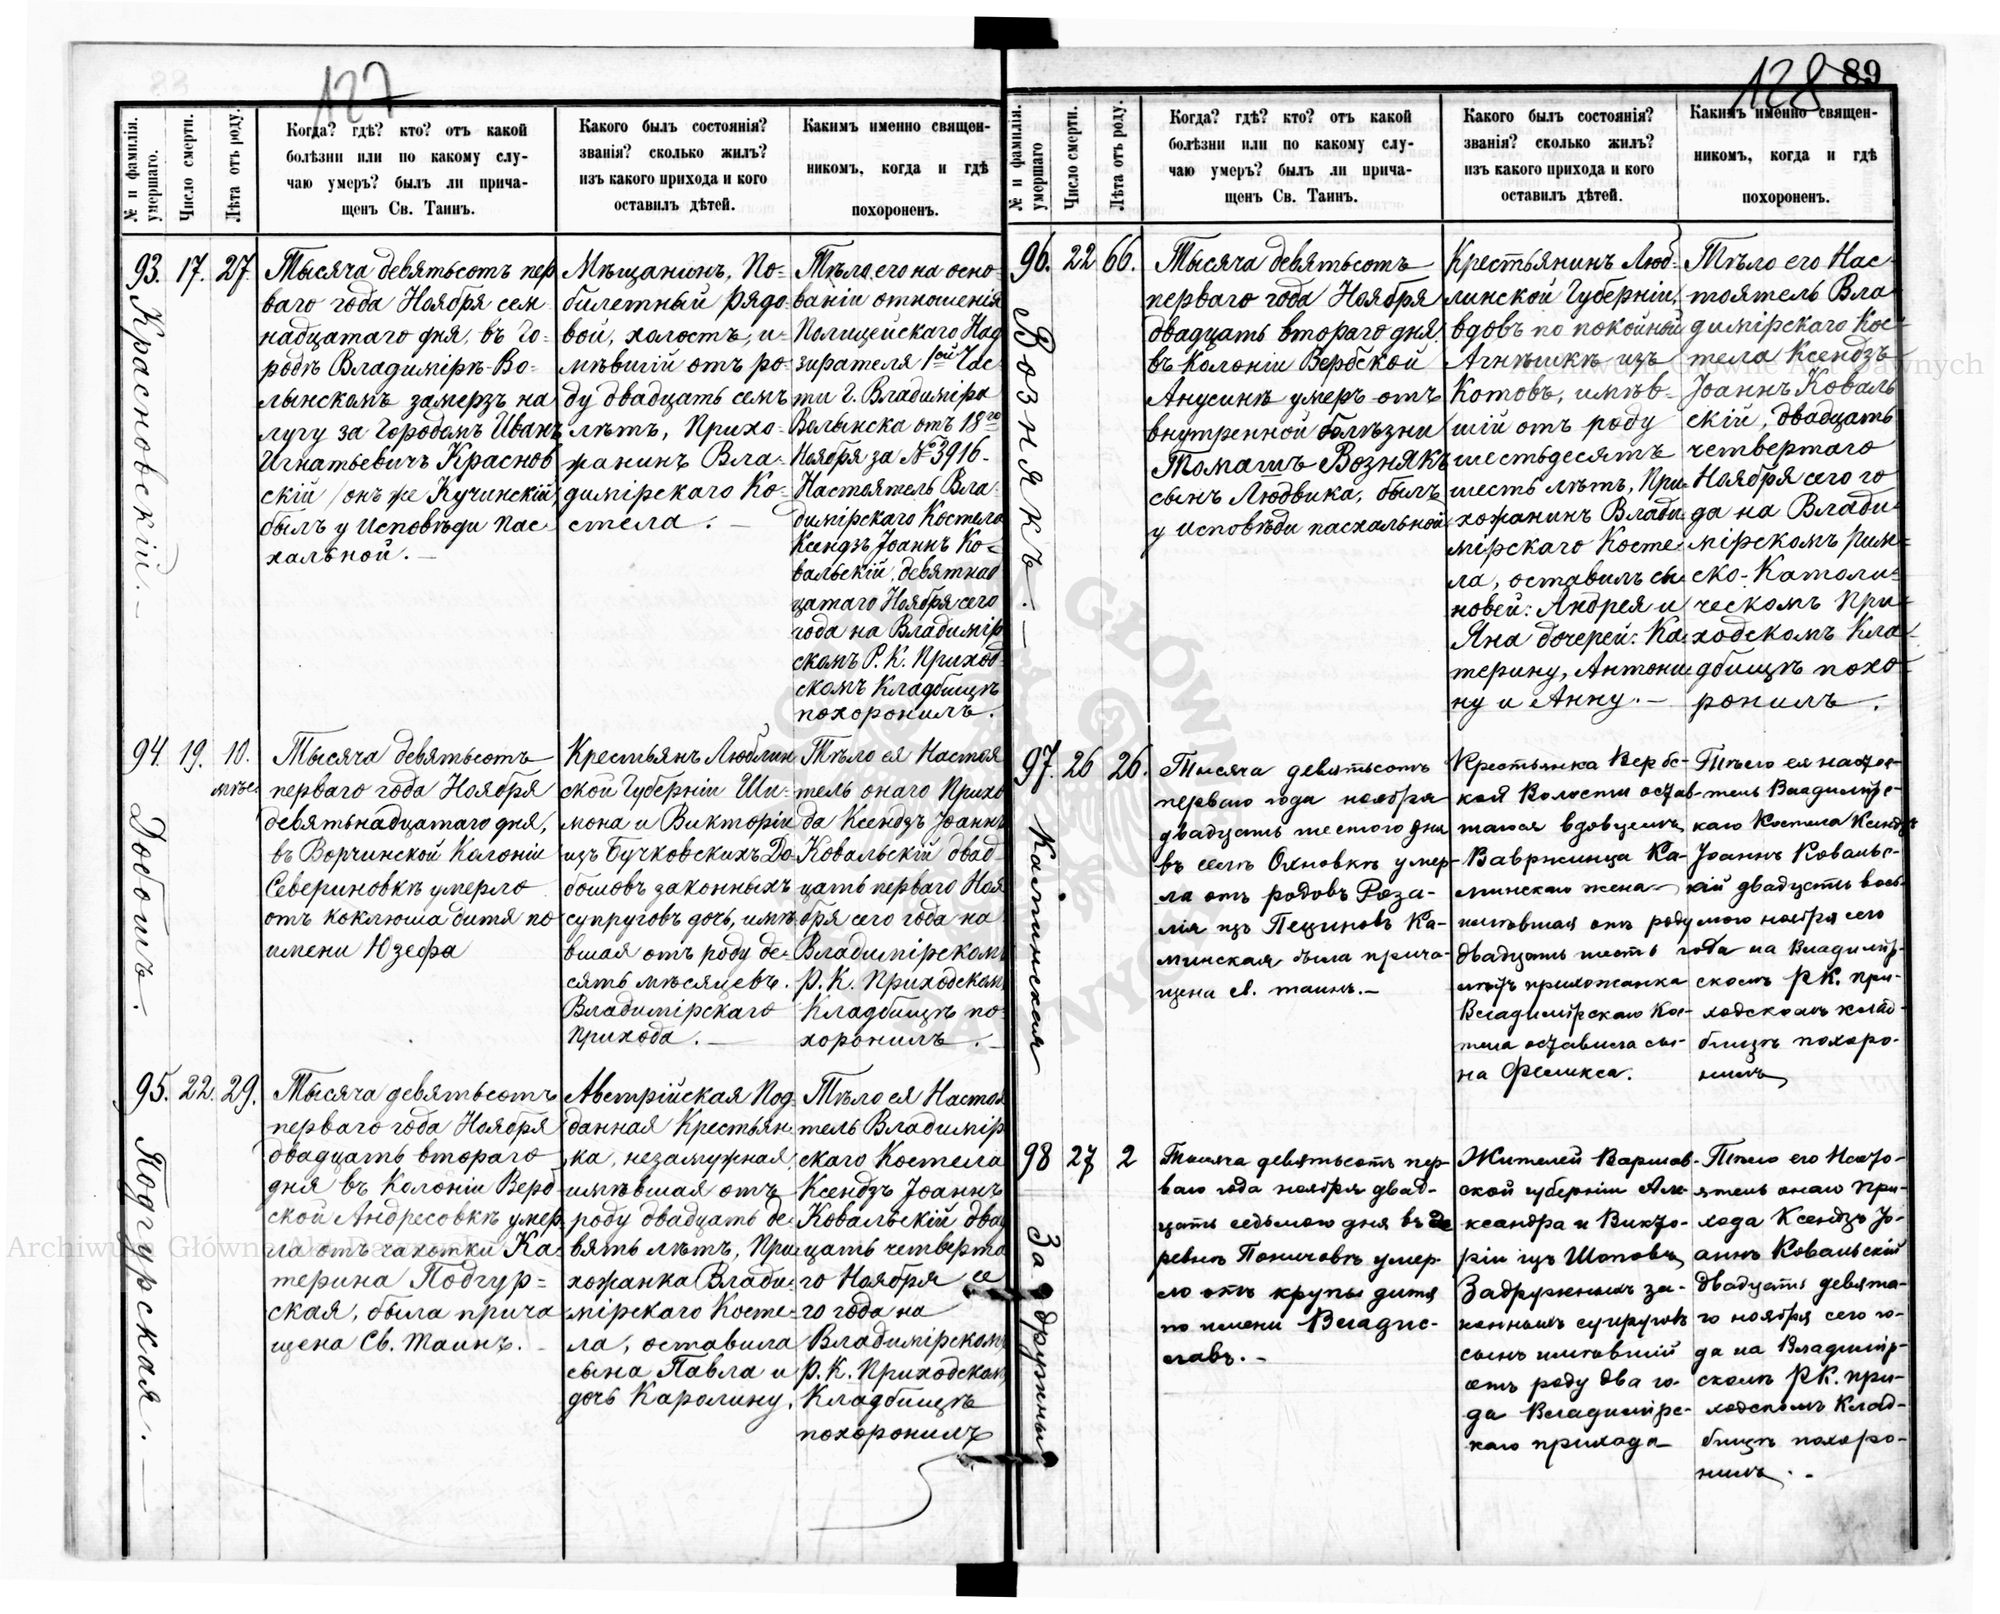 127
№ и фамилія.
умершаго.
Число смерти.
Лѣта отъ роду.
Когда? гдѣ? кто? отъ какой
болѣзни или по какому слу-
чаю умеръ? былъ ли прича-
щенъ Св. Таинъ.
Какого былъ состоянія?
званія? сколько жилъ?
изъ какого прихода и кого
оставилъ дѣтей.
Какимъ именно священ-
никомъ, когда и гдѣ
похороненъ.
93.
Красновскій. —
17.
27.
Тысяча девятьсотъ пер
ваго года Ноября сем
надцатаго дня, въ го-
родѣ Владимірѣ-Во-
лынскомъ замерзъ на
лугу за городомъ Иванъ
Игнатьевичъ Краснов
скій /онъ же Кучинскій/
былъ у Исповѣди пас
хальной. —
Мѣщанинъ, По-
билетный рядо-
вой, холостъ, и-
мѣвшій отъ ро-
ду двадцать семь
лѣтъ, Прихо-
жанинъ Вла-
димірскаго Ко-
стела. —
Тѣло его на осно-
ваніи отношенія
Полицейскаго Над
зирателя 1ой Час
ти г. Владиміра
Волынска отъ 18го
Ноября за № 3916-
Настоятель Вла-
димірскаго Костела
Ксендзъ Іоаннъ Ко-
вальскій, девятнад
цатаго Ноября сего
года на Владимір
скомъ Р. К. Приход
скомъ Кладбищѣ
похоронилъ.
94.
Добошъ.
19.
10.
мѣс.
Тысяча девятьсотъ
перваго года Ноября
девятьнадцатаго дня,
въ Ворчинской Колоніи
Севериновкѣ умерло
отъ коклюша дитя по
имени Юзефа
Крестьянъ Люблин
ской Губерніи Ши-
мона и Викторіи
изъ Бучковскихъ До-
бошовъ законныхъ
супруговъ дочь, имѣ
вшая отъ роду де-
сять мѣсяцевъ.
Владимірскаго
Прихода. —
Тѣло ея Настоя
тель онаго Прихо
да Ксендзъ Іоаннъ
Ковальскій двад-
цать перваго Ноя
бря сего года на
Владимірскомъ
Р. К. Приходскомъ
Кладбищѣ по-
хоронилъ. —
95.
Подгурская. —
22.
29.
Тысяча девятьсотъ
перваго года Ноября
двадцать втораго
дня въ Колоніи Верб
ской Андресовкѣ умер
ла отъ чахотки Ка-
терина Подгур-
ская, была прича
щена Св. Таинъ. -
Австрійская Под-
данная Крестьян-
ка, незамужная,
имѣвшая отъ
роду двадцать де-
вять лѣтъ, При-
хожанка Влади-
мірскаго Косте-
ла, оставила
сына Павла и
дочь Каролину.
Тѣло ея Настоя
тель Владимір
скаго Костела
Ксендзъ Іоаннъ
Ковальскій два
цать четверта
го Ноября се
го года на
Владимірскомъ
Р. К. Приходскомъ
Кладбищѣ
похоронилъ
128
89
№ и фамилія.
умершаго
Число смерти.
Лѣта отъ роду.
Когда? гдѣ? кто? отъ какой
болѣзни или по какому слу-
чаю умеръ? былъ ли прича-
щенъ Св. Таинъ.
Какого былъ состоянія?
званія? сколько жилъ?
изъ какого прихода и кого
оставилъ дѣтей.
Какимъ именно священ-
никомъ, когда и гдѣ
похороненъ.
96.
Вознякъ. —
22
66.
Тысяча девятьсотъ
перваго года Ноября
двадцать втораго дня
въ Колоніи Вербской
Анусинѣ умеръ отъ
внутренной болѣзни
Томашъ Вознякъ
сынъ Людвика, былъ
у исповѣди пасхальной
Крестьянинъ Люб-
линской Губерніи,
вдовъ по покойной
Агнѣшкѣ изъ
Котовъ, имѣв-
шій отъ роду
шестьдесятъ
шесть лѣтъ, При-
хожанинъ Влади-
мірскаго Косте-
ла, оставилъ сы-
новей: Андрея и
Яна дочерей: Ка-
терину, Антони-
ну и Анну. —
Тѣло его Нас-
тоятель Вла-
димірскаго Кос-
тела Ксендзъ
Іоаннъ Коваль
скій, двадцать
четвертаго
Ноября сего го
да на Влади
мірскомъ Рим-
ско-Католи-
ческомъ При-
ходскомъ Кла-
дбищѣ похо-
ронилъ.
97.
Каминская
26
26.
Тысяча девятьсотъ
перваго года ноября
двадцать шестого дня
въ селѣ Охновкѣ умер-
ла отъ родовъ Роза-
лія изъ Пецинов Ка-
минская была прича-
щена св. таинъ. —
Крестьянка Вербс-
кой Волости остав-
шаяся вдовцемъ
Вавржинца Ка-
минскаго жена —
имѣвшая отъ роду
двадцать шесть
лѣтъ прихожанка
Владимірскаго Кос-
тела оставила сы-
на Феликса.
Тѣло ея настоя-
тель Владимірс-
каго Костела Ксендзъ
Іоаннъ Ковальс-
кій двадцать вось-
мого ноября сего
года на Владимір-
скомъ Р.К. при-
ходскомъ клад-
бищѣ похоро-
нилъ
98
Задружны
27
2
Тысяча девятьсотъ пер-
ваго года ноября двад-
цать седьмого дня въ де
ревнѣ Поничовкѣ умер-
ло отъ крупы дитя
по имени Владис-
лавъ. —
Жителей Варшав-
ской губерніи Але-
ксандра и Викто-
ріи изъ Шоповъ
Задружныхъ за-
конныхъ супруговъ
сынъ имѣвшій
отъ роду два го-
да Владимірс-
каго прихода —
Тѣло его Насто-
ятель онаго при-
хода Ксендзъ Іо-
аннъ Ковальскій
двадцать девята-
го ноября сего го-
да на Владимір-
скомъ Р.К. при-
ходскомъ Клад-
бищѣ похоро-
нилъ. -
Archiwum Główne Akt Dawnych
Archiwum Główne Akt Dawnych